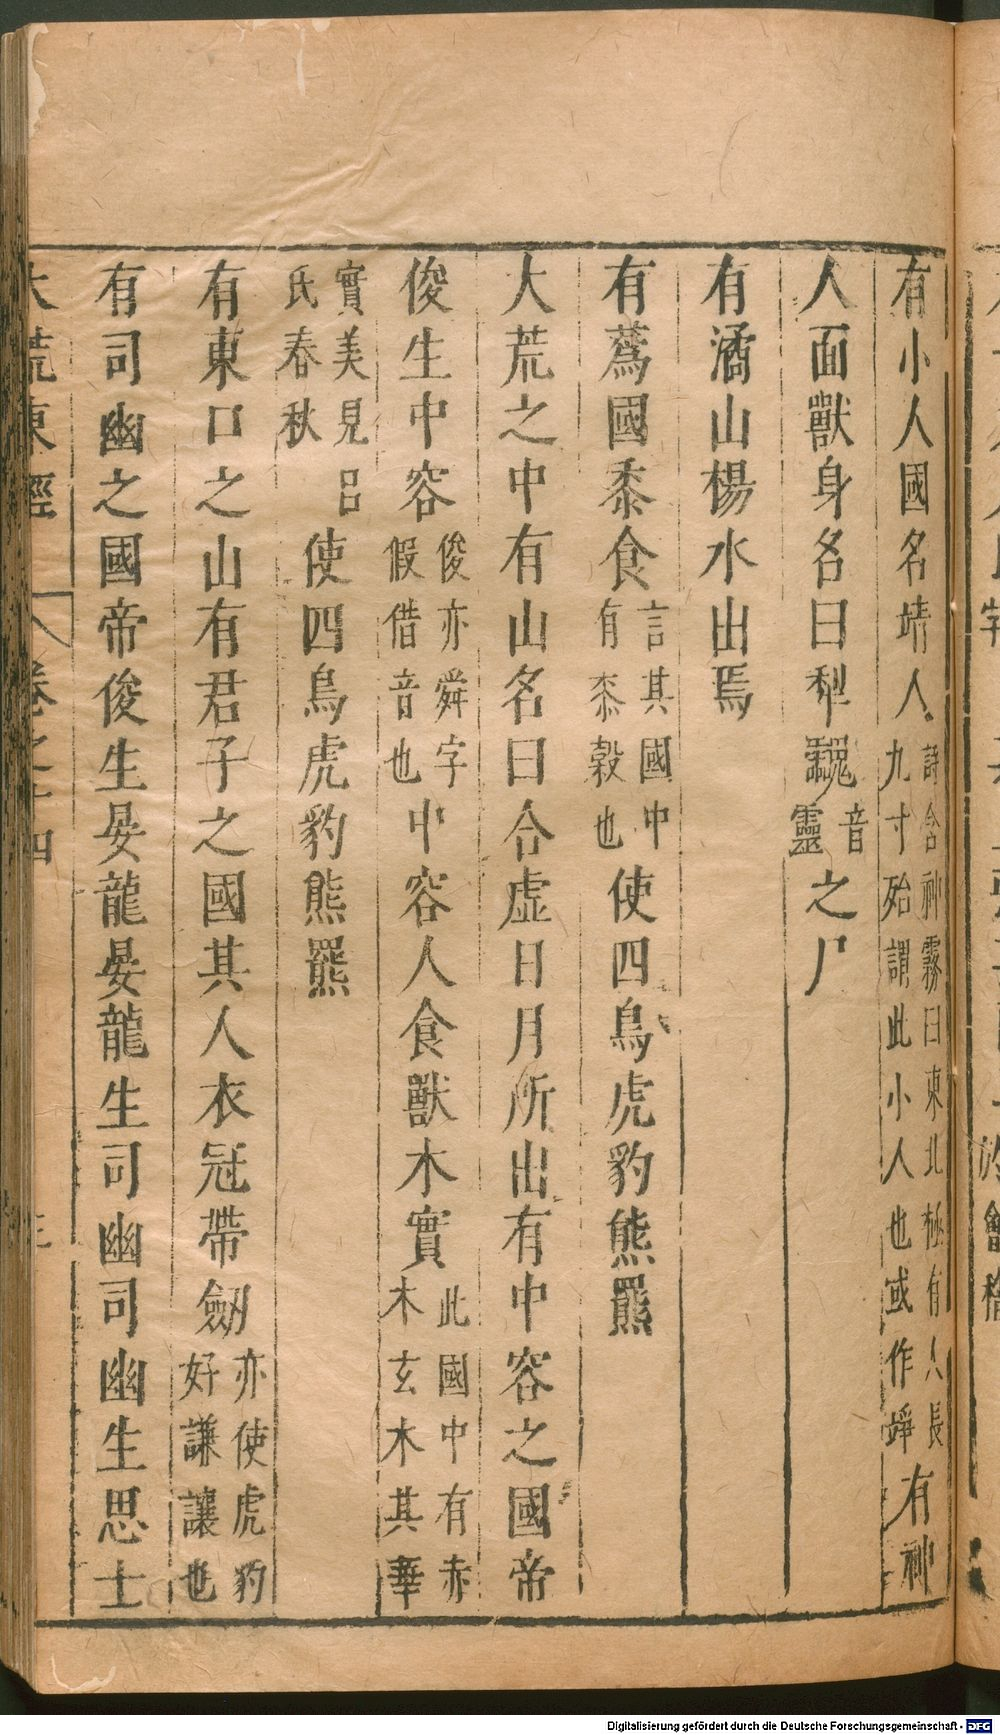 有小人國名靖人詩含神霧曰東北極有人長九寸殆謂此小人也或作竫有神
人面獸身名曰犁𩳁音靈之尸
有潏山楊水出焉
有蔿國黍食言其國中有黍穀也使四鳥虎豹熊羆
大荒之中有山名曰合虛日月所出有中容之國帝
俊生中容俊亦舜字假借音也中容人食獸木實此國中有赤木玄木其華
實美見呂氏春秋使四鳥虎豹熊羆
有東口之山有君子之國其人衣冠帶劒亦使虎豹好謙讓也
有司幽之國帝俊生晏龍晏龍生司幽司幽生思士
大荒東經 卷之十四 三
Digitalisierung gefördert durch die Deutsche Forschungsgemeinschaft - DFG